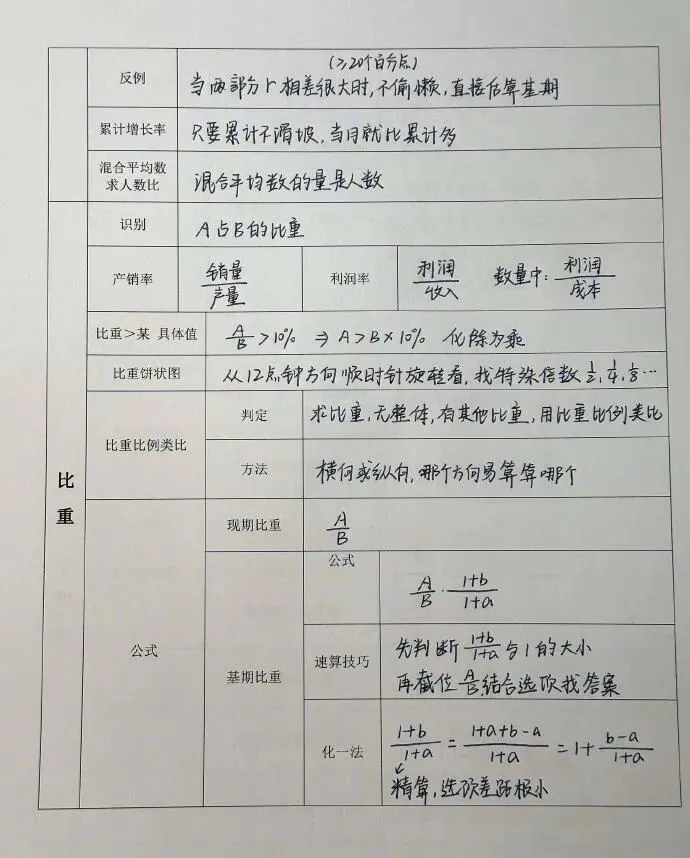 反例
(≥20个百分点)
当两部分r相差很大时,不偷懒,直接估算基期
累计增长率
只要累计不滑坡,当月就比累计多
混合平均数
求人数比
混合平均数的量是人数
比重
识别
A占B的比重
产销率
销量/产量
利润率
利润/收入 数量中:利润/成本
比重>某 具体值
A/B>10% ⇒ A>B×10% 化除为乘
比重饼状图
从12点钟方向顺时针旋转看,找特殊倍数1/2,1/4,1/8…
比重比例类比
判定
求比重,无整体,有其他比重,用比重比例类比
方法
横向或纵向,哪个方向易算算哪个
公式
现期比重
A/B
基期比重
公式
A/B·(1+b)/(1+a)
速算技巧
先判断(1+b)/(1+a)与1的大小
再截位A/B,结合选项找答案
化一法
(1+b)/(1+a)=(1+a+b-a)/(1+a)=1+(b-a)/(1+a)
精算,选项差距极小